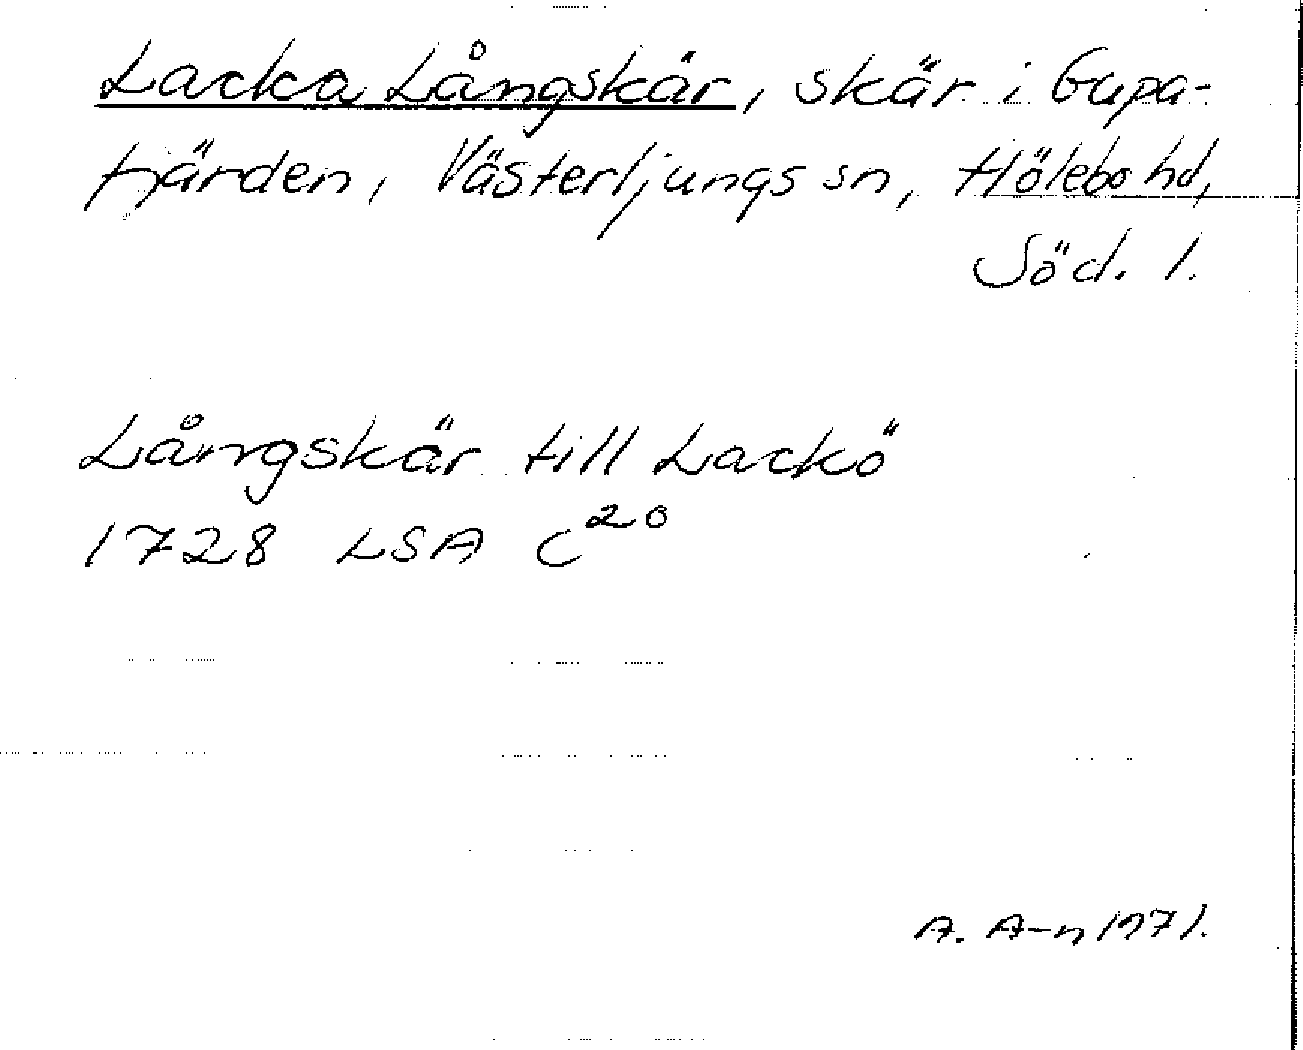 Lacka Långskär, skär i Gupa-
fjärden, Västerljungs sn, Hölebo hd,
Söd. l.
Långskär till Lackö
1728 LSA C20
A. A-n 1971.